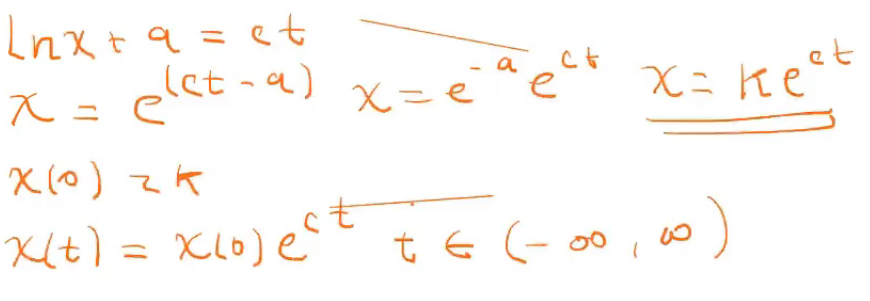 lnx + a = ct
x = e^(ct - a) x = e^-a e^ct x = ke^ct
x(0) = k
x(t) = x(0) e^ct t ∈ (-∞, ∞)